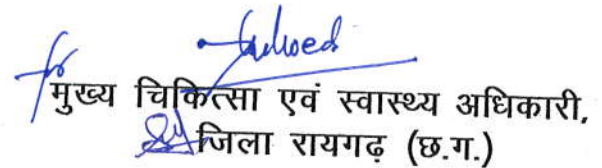 मुख्य चिकित्सा एवं स्वास्थ्य अधिकारी,
जिला रायगढ़ (छ.ग.)